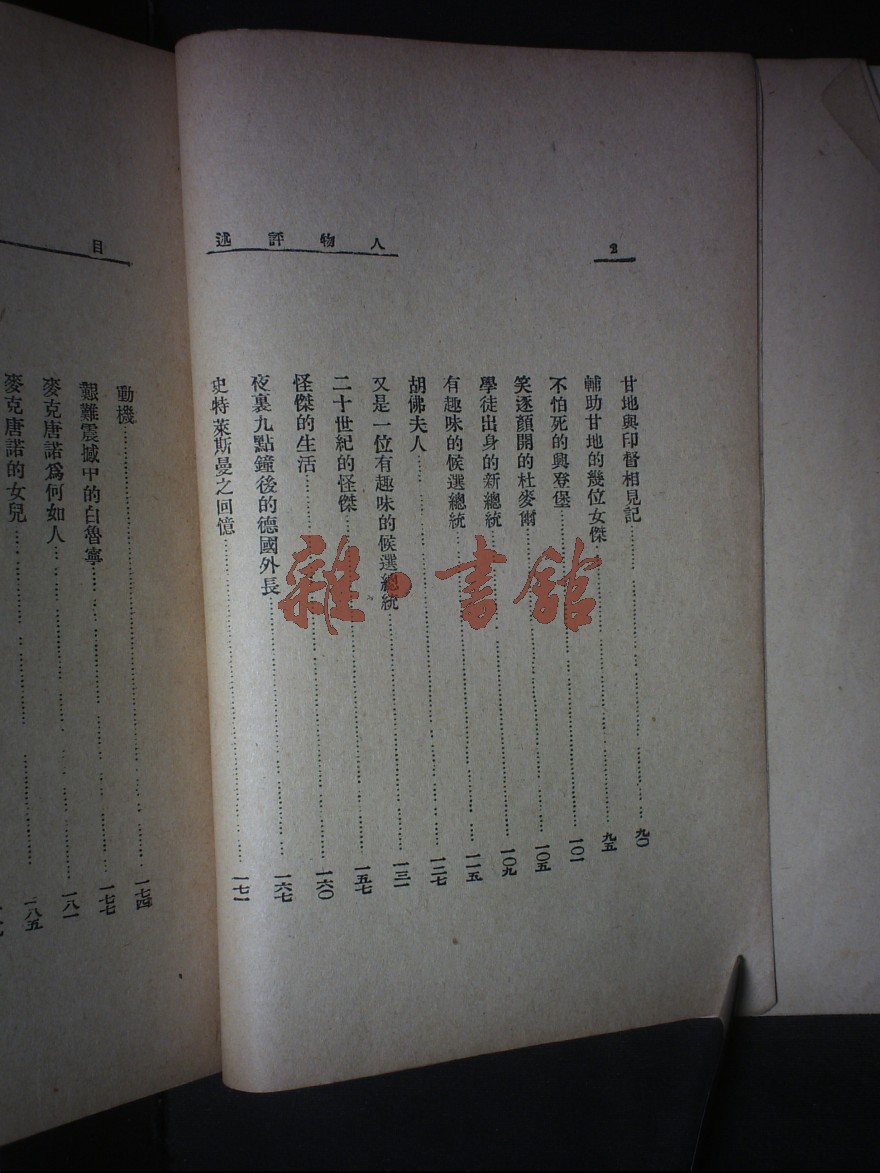 人物評述
2
甘地與印督相見記……九〇
輔助甘地的幾位女傑……九五
不怕死的興登堡……一〇一
笑逐顏開的杜麥爾……一〇五
學徒出身的新總統……一〇九
有趣味的候選總統……一一五
胡佛夫人……一二七
又是一位有趣味的候選總統……一三一
二十世紀的怪傑……一五七
怪傑的生活……一六〇
夜裏九點鐘後的德國外長……一六七
史特萊斯曼之回憶……一七一
目
動機……一七四
艱難震撼中的白魯寧……一七七
麥克唐諾爲何如人……一八一
麥克唐諾的女兒……一八五
雜·書館